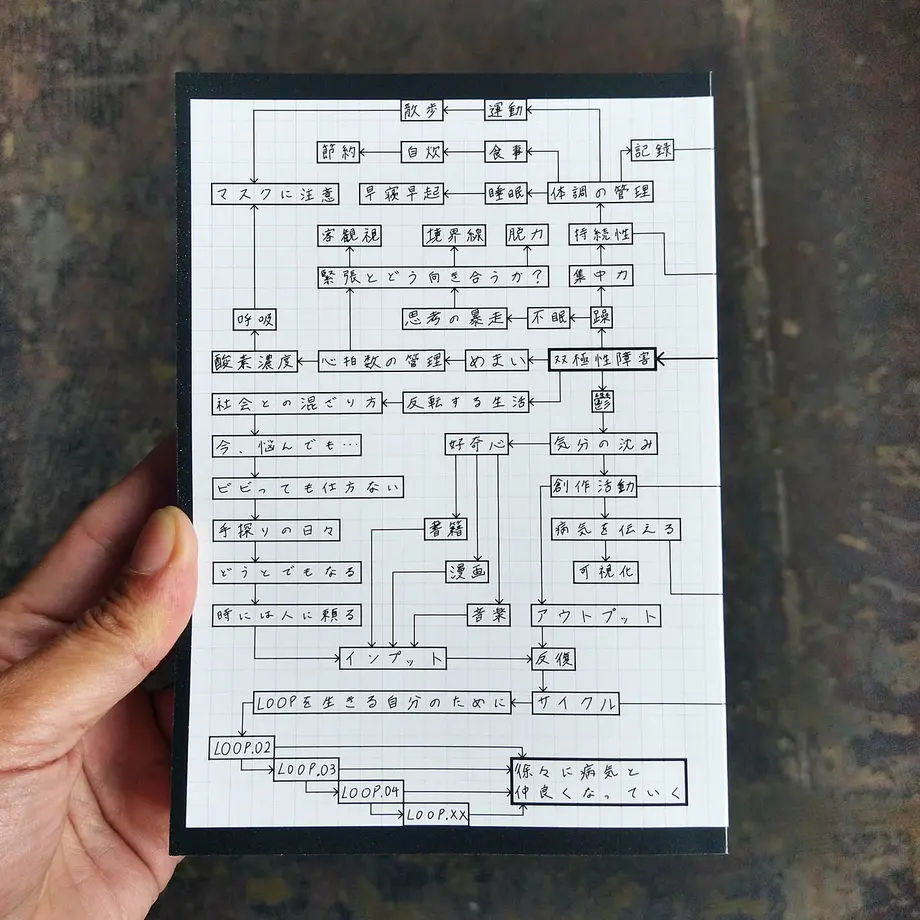 散歩
運動
節約
自炊
食事
記録
マスクに注意
早寝早起
睡眠
体調の管理
客観視
境界線
脱力
持続性
緊張とどう向き合うか?
集中力
呼吸
思考の暴走
不眠
躁
酸素濃度
心拍数の管理
めまい
双極性障害
社会との混ざり方
反転する生活
鬱
今、悩んでも…
好奇心
気分の沈み
ビビっても仕方ない
創作活動
手探りの日々
書籍
病気を伝える
どうとでもなる
漫画
可視化
時には人に頼る
音楽
アウトプット
インプット
反復
LOOPを生きる自分のために
サイクル
LOOP.02
LOOP.03
徐々に病気と
仲良くなっていく
LOOP.04
LOOP.XX